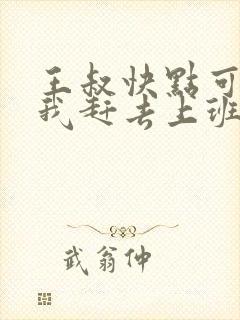 王叔快點可
我赶去上班
武翁仲